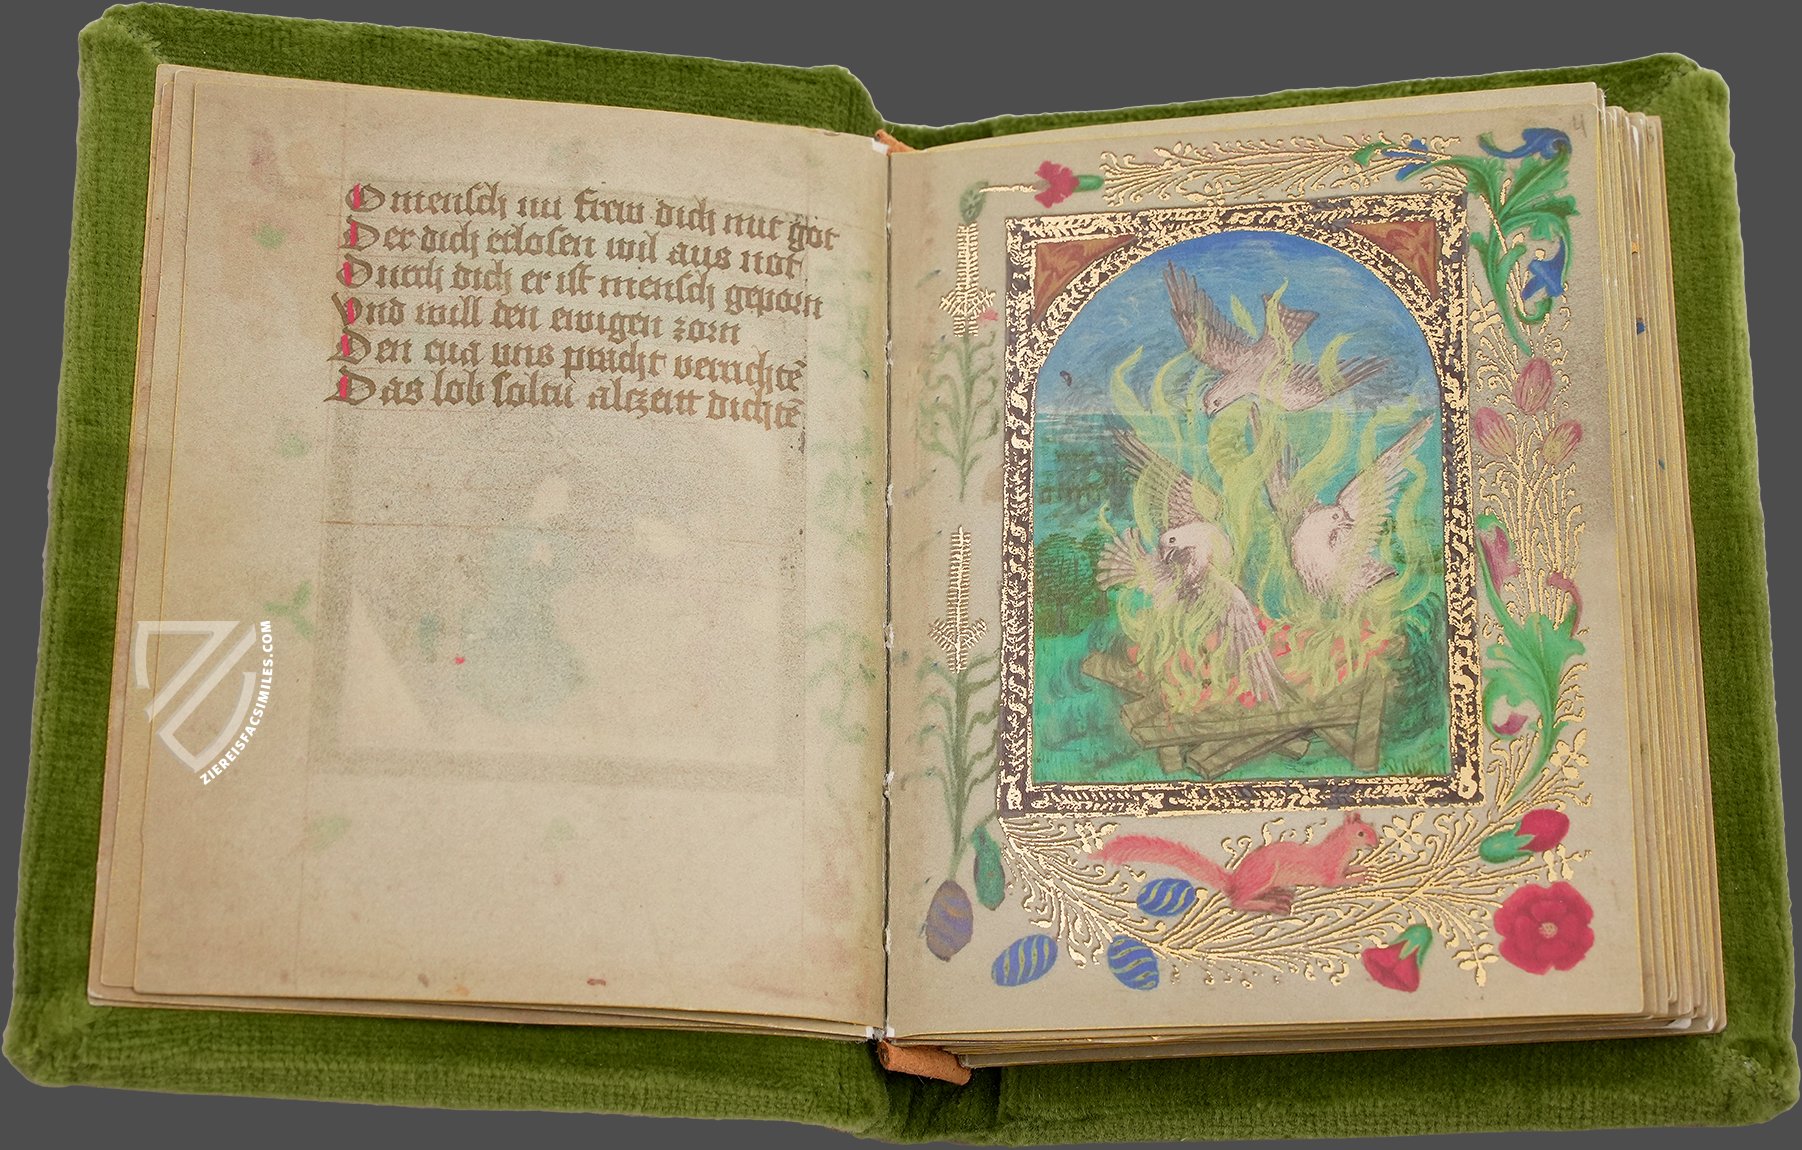 O mensch nu frew dich mit got
Der dich erlosen wil aus not
Durch dich er ist mensch geporn
Vnd will den ewigen zorn
Den eua vns pracht vernichtē
Das lob soltu alczeit dichtē
4
ZIEREISFACSIMILES.COM